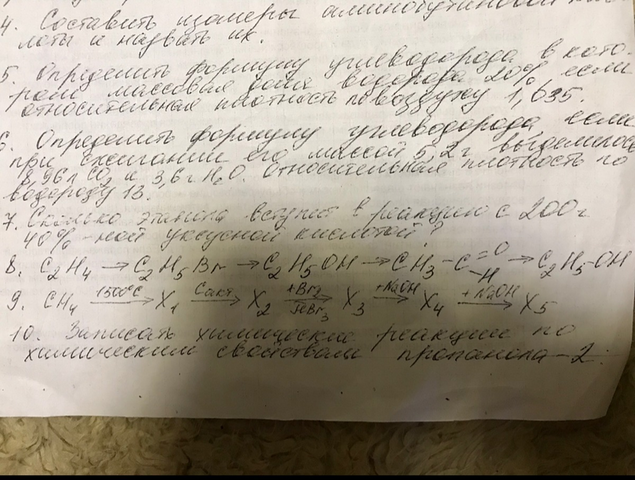 4. Составить изомеры аминобутановой кис-
лоты и назвать их.
5. Определить формулу углеводорода, в кото-
рой массовая доля водорода 20%, если
относительная плотность по воздуху 1,035.
6. Определить формулу углеводорода, если
при сжигании его массой 5,2г выделилось
8,96л CO2 и 3,6г H2O. Относительная плотность по
водороду 13.
7. Сколько этанола вступит в реакцию с 200г
40%-ной уксусной кислотой?
8. C2H4 → C2H5Br → C2H5OH → CH3-C=O -H → C2H5-OH
9. CH4 1500°C→ X1 Cакт→ X2 +Br2 FeBr3→ X3 +NaOH→ X4 +NaOH→ X5
10. Записать химические реакции по
химическим свойствам пропанола-2.